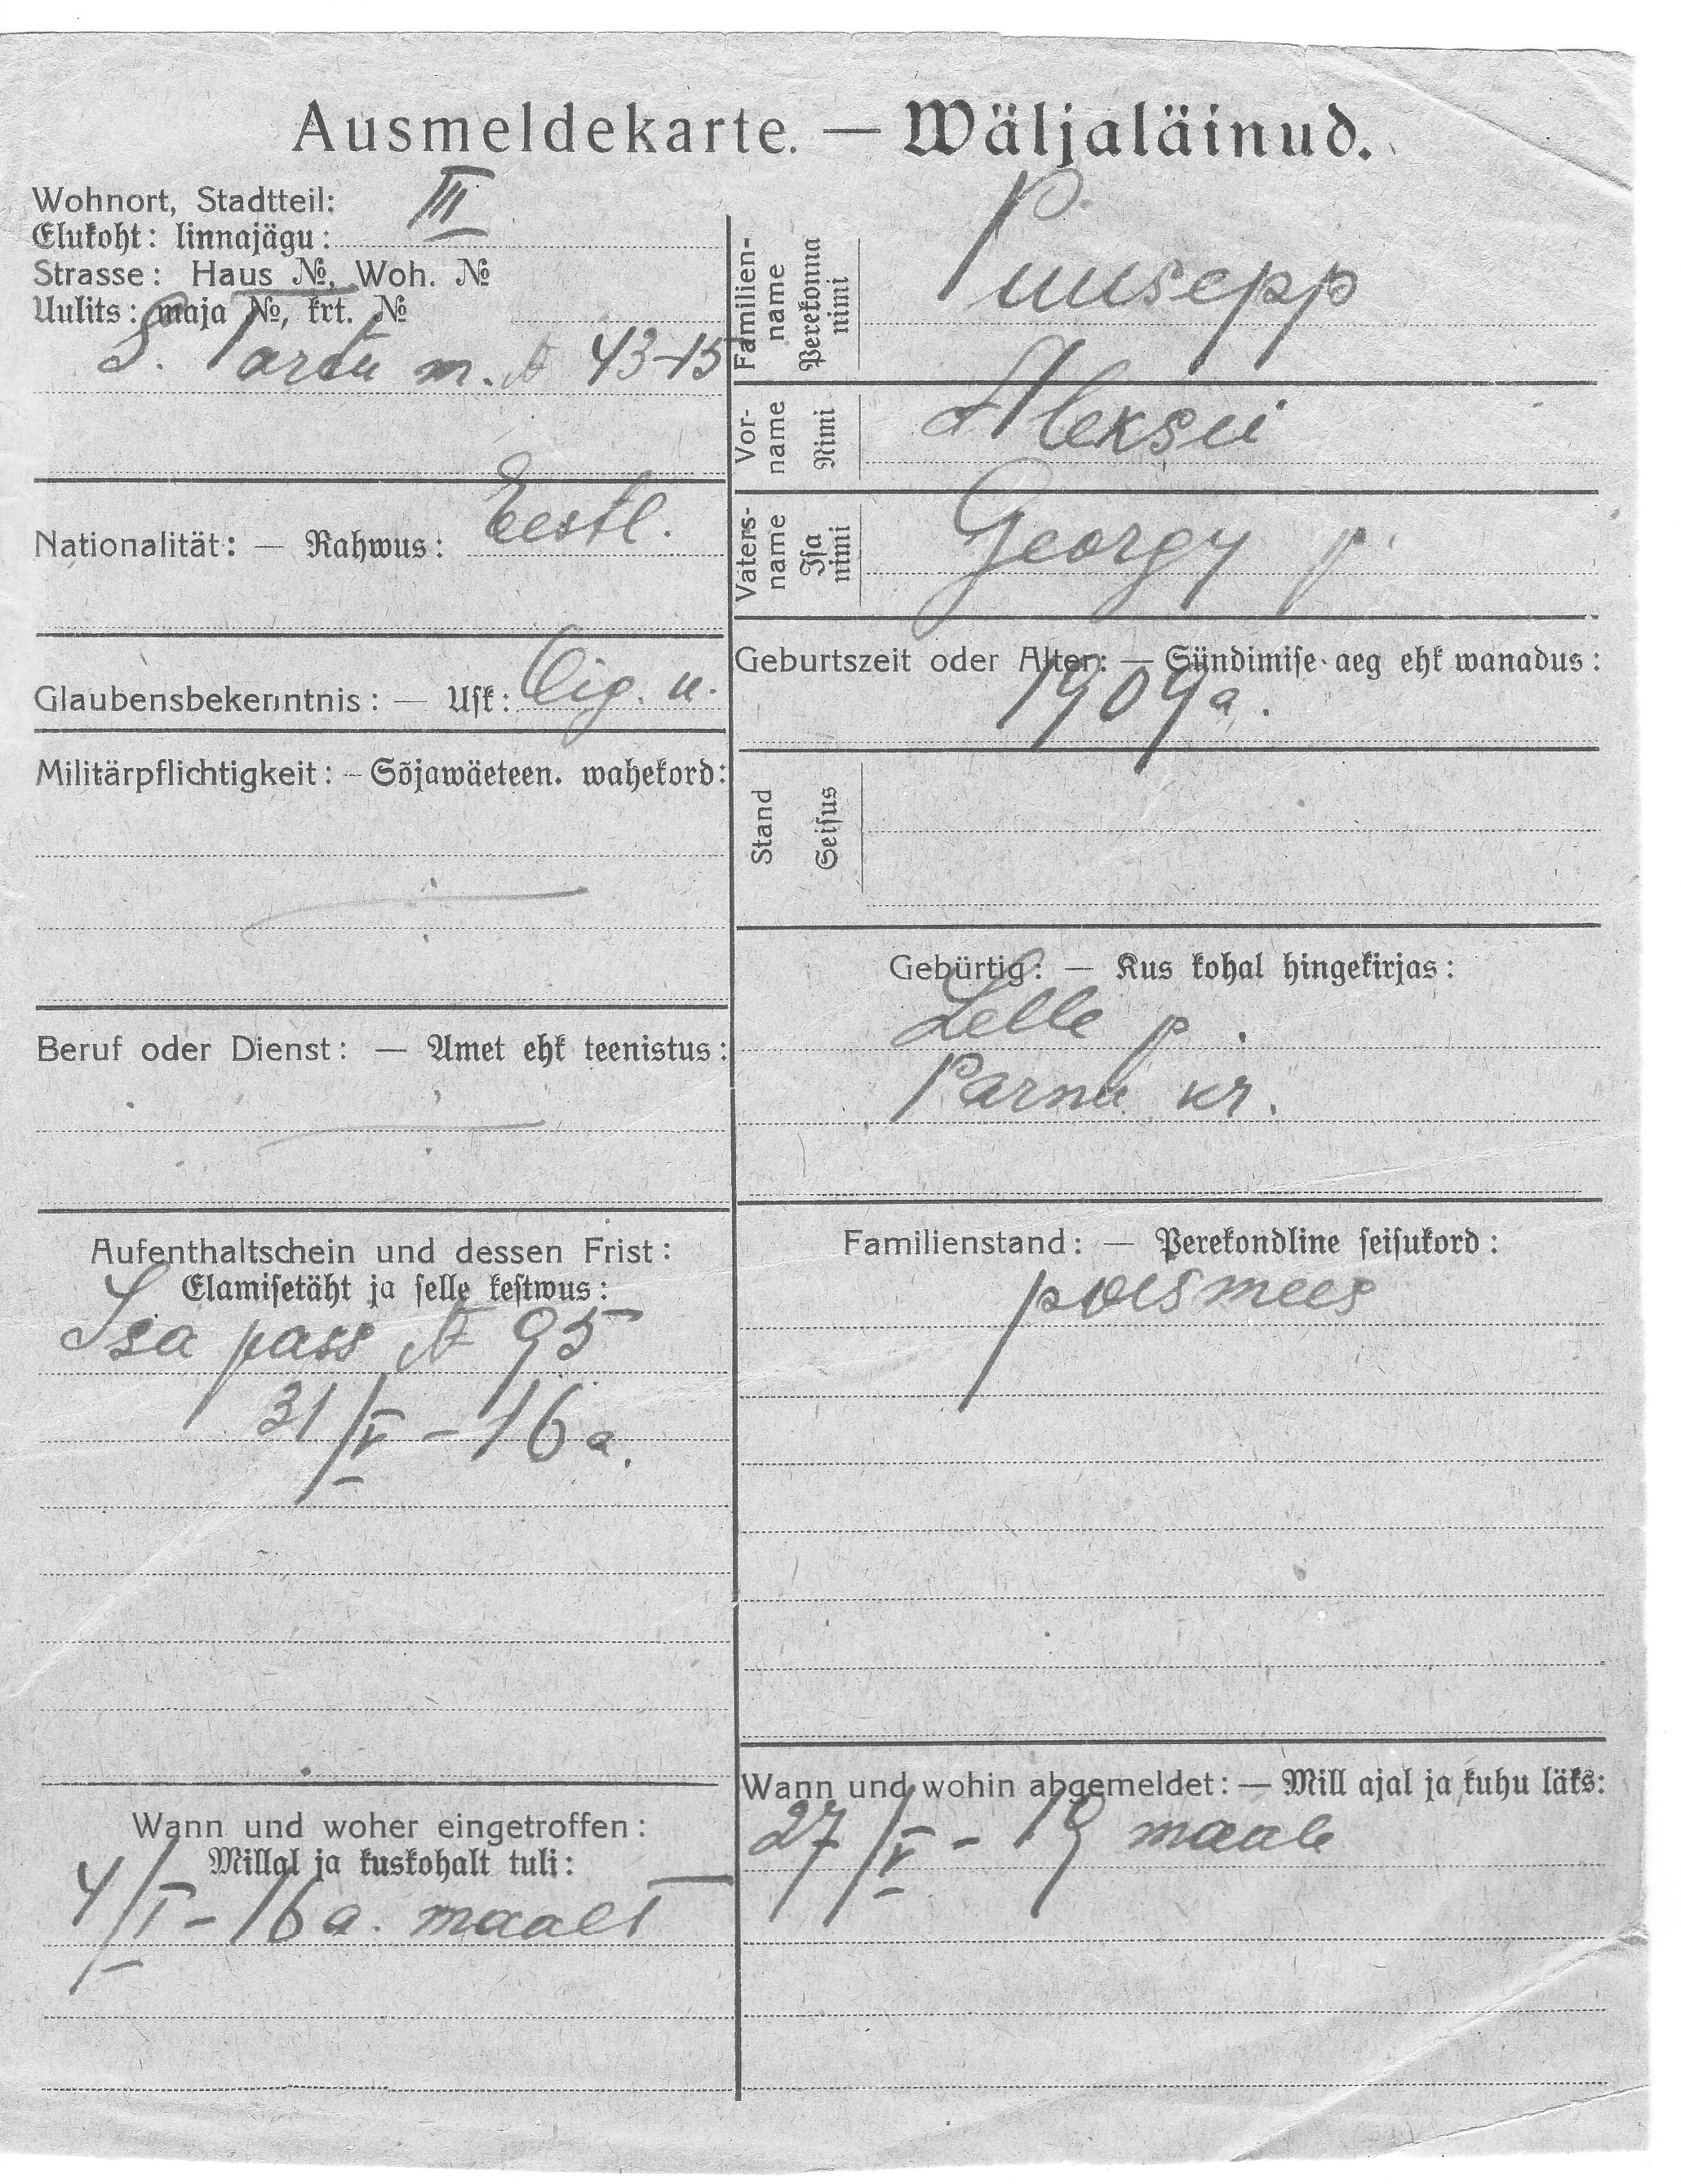 Ausmeldekarte. — Wäljaläinud.
Wohnort, Stadtteil: III
Elukoht: linnajägu:
Strasse: Haus №, Woh. №
Uulits: maja №, krt. №
S. Tartu m. № 43-15
Nationalität: — Rahwus: Eestl.
Glaubensbekenntnis: — Usk: Õig. u.
Militärpflichtigkeit: – Sõjawäeteen. wahekord:
Beruf oder Dienst: — Amet ehk teenistus:
Aufenthaltschein und dessen Frist:
Elamisetäht ja selle kestwus:
Isa pass № 95
31/V – 16 a.
Wann und woher eingetroffen:
Millal ja kuskohalt tuli:
4/I – 16 a. maalt
Familien-name Perekonna nimi
Puusepp
Vor-name Nimi
Aleksei
Vaters-name Isa nimi
Georgy p.
Geburtszeit oder Alter: — Sündimise aeg ehk wanadus:
1909 a.
Stand Seisus
Gebürtig: — Kus kohal hingekirjas:
Lelle p.
Pärnu kr.
Familienstand: — Perekondline seisukord:
poismees
Wann und wohin abgemeldet: — Mill ajal ja kuhu läks:
27/V – 19 maale